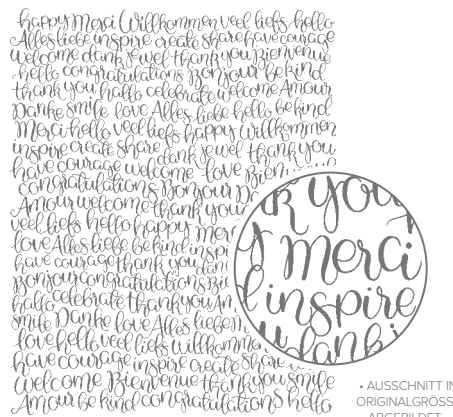 happy Merci Willkommen veel liefs hello
Alles liebe inspire create share have courage
welcome dank je wel thank you Bienvenue
hello congratulations Bonjour be kind
thank you hallo celebrate welcome Amour
Danke smile love Alles liebe hello be kind
Merci hello veel liefs happy Willkommen
inspire create share dank je wel thank you
have courage welcome love Bien
congratulations Bonjour Da
Amour welcome thank you
veel liefs hello happy merc
love Alles liebe be kind inspi
have courage thank you dan
Bonjour congratulations Bi
hallo celebrate thank you Am
smile Danke love Alles liebe
love hello veel liefs willkomm
have courage inspire create share
Welcome Bienvenue thank you smile
Amour be kind congratulations hello
k you
Merci
inspire
u dank j
• AUSSCHNITT IN
ORIGINALGRÖSS
ABGEBILDET